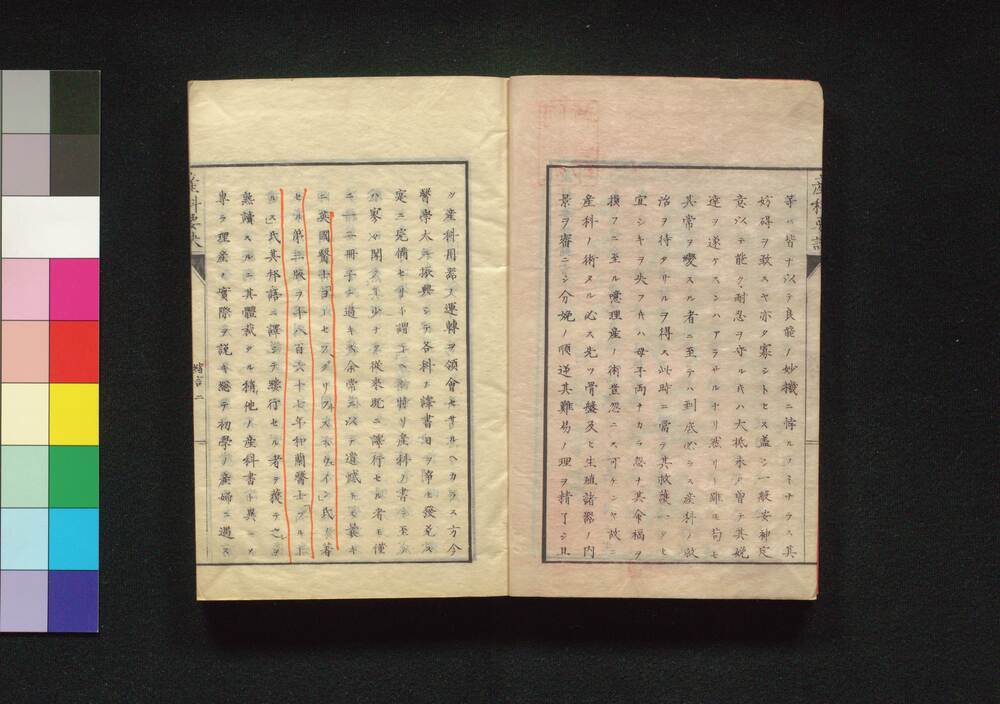 等ニ皆ナ以テ良能ノ妙機ニ悖ルノミナラス其
妨碍ヲ致スヤ亦タ寡シトセス蓋シ一般安神定
意以テ能ク耐忍ヲ守ル氏ハ大抵未タ曽テ其娩
産ヲ遂ケスンハアラサルナリ然リト雖モ苟モ
其常ヲ變スル者ニ至テハ到底必ラス産科ノ救
治ヲ待タサルヲ得ス此時ニ當テ其救護一タヒ
宜シキヲ失フ氏ハ母子両ナカラ忽チ其命福ヲ
損フニ至ル噫理産ノ術豈忽ニス可ケンヤ故ニ
産科ノ術タル必ス先ツ骨盤及ヒ生殖諸器ノ内
景ヲ審ニシ分娩ノ順逆其難易ノ理ヲ精了シ且
ツ産科用器ノ運轉ヲ領會セサルヘカラス方今
醫學大ニ振興シテ各科ノ譯書日ヲ逐テ發兌ス
寔ニ完備セリト謂フヘシ特リ産科ノ書ニ至テ
ハ寥々聞クモノ少ナク従来既ニ簿行セル者モ僅
ニ一二冊子ニ過キス余常ニ以テ遺憾トセリ曩キ
ニ英國醫士
セル第三版ヲ千八百六十七年和蘭醫士
ルス」氏其邦語ニ譯シテ鏤行セル者ヲ獲テ之ヲ
熟讀スルニ其體裁タル稍他ノ産科書ト異ニメ
専ラ理産ノ實際ヲ説キ總テ初學ノ産婦ニ遇ス
緒言二